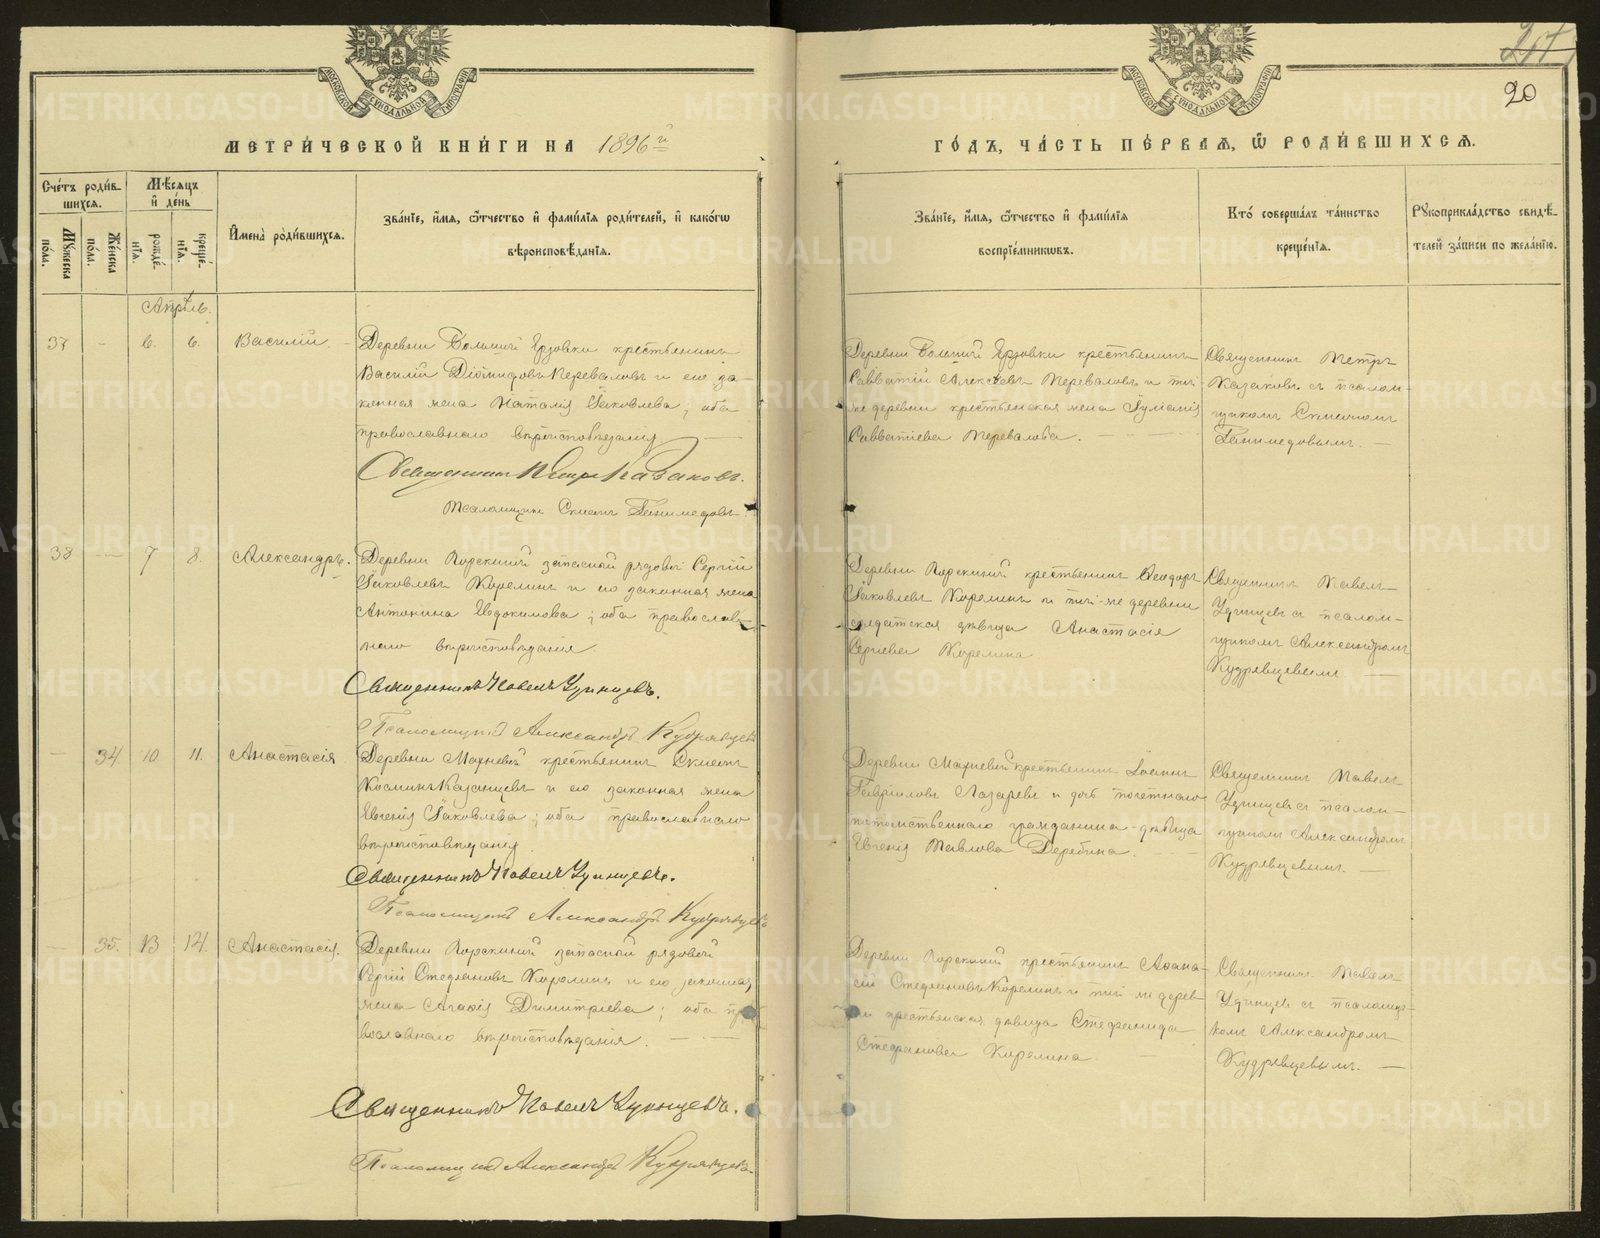 20
МЕТРИ́ЧЕСКОЙ КНИ́ГИ НА 1896 й
ГО́ДЪ, ЧА́СТЬ ПЕ́РВАЯ, Ѿ РОДИ́ВШИХСЯ.
Сче́тъ роди́вшихся.
Мѣ́сяцъ и де́нь
Мꙋжеска по́ла.
Же́нска по́ла.
рожде́нїѧ.
креще́нїѧ.
И́мена̀ роди́вшихсѧ.
Зва́нїе, и́мѧ, ѻ́тчество и̂ фами́лїѧ роди́телей, и̂ како́гѡ
вѣроисповѣ́данїѧ.
Зва́нїе, и́мѧ, ѻ́тчество и̂ фами́лїѧ
воспрїе́мникѡвъ.
Кто́ соверша́лъ та́инство
креще́нїѧ.
Рꙋкоприкла́дство свидѣ́-
телей за́писи по жела́нїю.
Апрѣль.
37 - 6. 6. Василій.
Деревни Большой Ерзовки крестьянинъ
Василій Діомидовъ Переваловъ и его за-
конная жена Наталія Іаковлева; оба
православнаго вѣроисповѣданія
Священникъ Петръ Казаковъ.
Псаломщикъ Симеонъ Ганимедовъ
Деревни Большой Ерзовки крестьянинъ
Савватій Алексѣевъ Переваловъ и той-
же деревни крестьянская жена Іуліанія
Савватіева Перевалова.
Священникъ Петръ
Казаковъ съ псалом-
щикомъ Симеономъ
Ганимедовымъ.
38 - 7 8. Александръ.
Деревни запасной рядовой Сергій
Іаковлевъ Корелинъ и его законная жена
Антонина Евдокимова; оба православ-
наго вѣроисповѣданія
Священникъ Павелъ Удинцевъ.
Псаломщикъ Александръ Кудрявцевъ
Деревни крестьянинъ Ѳеодоръ
Іаковлевъ Корелинъ и той-же деревни
солдатская дѣвица Анастасія
Сергіева Корелина
Священникъ Павелъ
Удинцевъ съ псалом-
щикомъ Александромъ
Кудрявцевымъ.
- 34 10 11. Анастасія
Деревни Махневой крестьянинъ Симеонъ
Косминъ Казанцевъ и его законная жена
Евгенія Іаковлева; оба православнаго
вѣроисповѣданія
Священникъ Павелъ Удинцевъ.
Псаломщикъ Александръ Кудрявцевъ
Деревни Махневой крестьянинъ Іоаннъ
Гавриловъ Лазаревъ и дочь почетнаго
потомственнаго гражданина дѣвица
Евгенія Павлова Дерябина.
Священникъ Павелъ
Удинцевъ съ псалом-
щикомъ Александромъ
Кудрявцевымъ.
- 35. 13 14. Анастасія.
Деревни запасной рядовой
Сергій Стефановъ Корелинъ и его законная
жена Агафія Димитріева; оба пра-
вославнаго вѣроисповѣданія.
Священникъ Павелъ Удинцевъ.
Псаломщикъ Александръ Кудрявцевъ.
Деревни крестьянинъ Аѳана-
сій Стефановъ Корелинъ и той же дерев-
ни крестьянская дѣвица Стефанида
Стефанова Корелина
Священникъ Павелъ
Удинцевъ съ псаломщи-
комъ Александромъ
Кудрявцевымъ.
METRIKI.GASO-URAL.RU